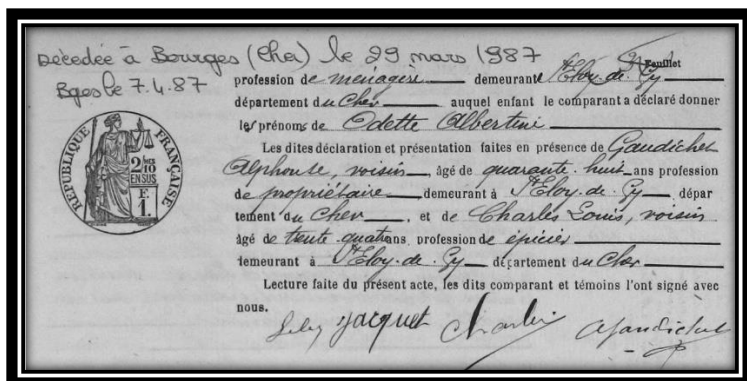 Décédée à Bourges (Cher) le 29 mars 1987
Bges le 7.4.87
Feuillet
profession de ménagère demeurant à St Eloy-de-Gy
département du Cher auquel enfant le comparant a déclaré donner
les prénoms de Odette Albertine
Les dites déclaration et présentation faites en présence de Gaudichet
Alphonse, voisin, âgé de quarante-huit ans profession
de propriétaire demeurant à St Eloy-de-Gy dépar
tement du Cher, et de Charles Louis, voisin
âgé de trente-quatre ans, profession de épicier
demeurant à St Eloy-de-Gy département du Cher
Lecture faite du présent acte, les dits comparant et témoins l'ont signé avec
nous.
Jacquet Charles Gaudichet
REPUBLIQUE FRANÇAISE
2/10 EN SUS
F.
1.